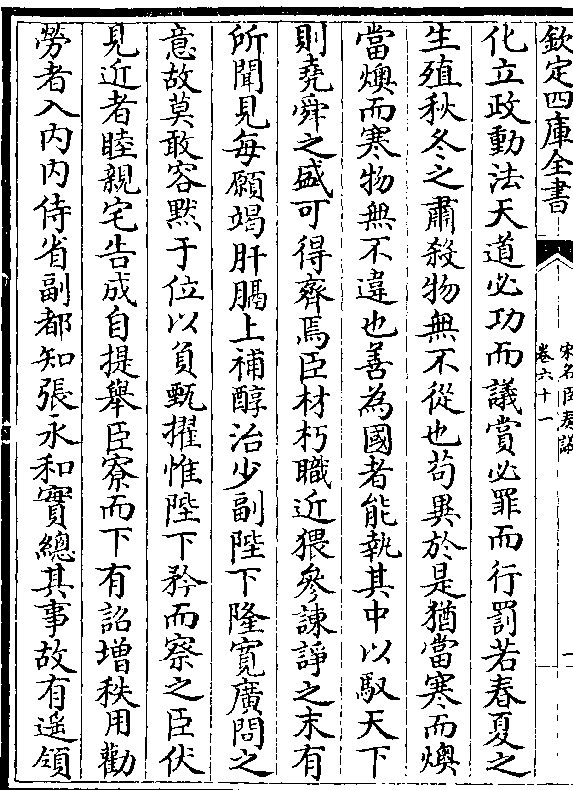 欽定四庫全書
宋名臣奏議
卷六十一
化立政動法天道必功而議賞必罪而行罰若春夏之
生殖秋冬之肅殺物無不從也苟異於是猶當寒而燠
當燠而寒物無不違也善為國者能執其中以馭天下
則堯舜之盛可得齊焉臣材朽職近猥參諫諍之末有
所聞見每願竭肝膈上補醇治少副陛下隆寬廣問之
意故莫敢容黙于位以負甄擢惟陛下矜而察之臣伏
見近者睦親宅告成自提舉臣寮而下有詔增秩用勸
勞者入内内侍省副都知張永和實總其事故有遥領